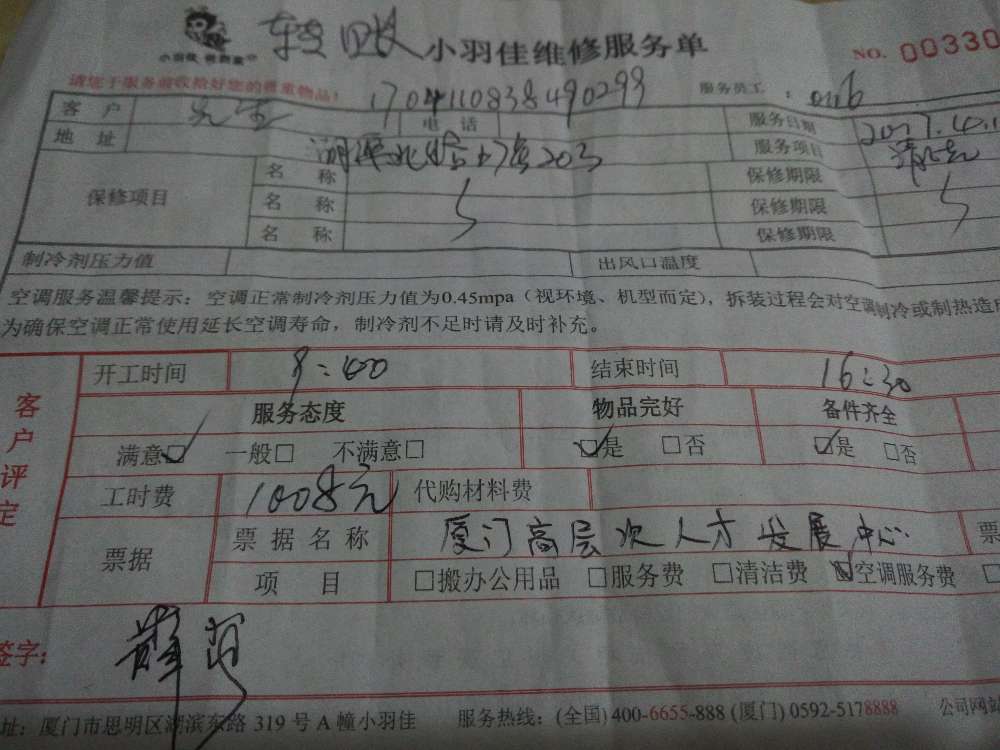 转账 小羽佳维修服务单 NO. 00330
小羽佳
请您于服务前收拾好您的贵重物品! 17041108384902 服务员工:
客户 先生 电话 服务日期 2017.4.1
地址 203 服务项目
保修项目 名称 保修期限
名称 保修期限
名称 保修期限
制冷剂压力值 出风口温度
空调服务温馨提示:空调正常制冷剂压力值为0.45mpa(视环境、机型而定),拆装过程会对空调制冷或制热造
为确保空调正常使用延长空调寿命,制冷剂不足时请及时补充。
客户评定
开工时间 结束时间 16:30
服务态度 物品完好 备件齐全
满意☑ 一般□ 不满意□ ☑是 □否 ☑是 □否
工时费 1008元 代购材料费
票据 票据名称 厦门高层次人才发展中心 票
项目 □搬办公用品 □服务费 □清洁费 ☑空调服务费
签字:
址:厦门市思明区湖滨东路 319 号 A 幢小羽佳 服务热线:(全国) 400-6655-888 (厦门) 0592-5178888 公司网站